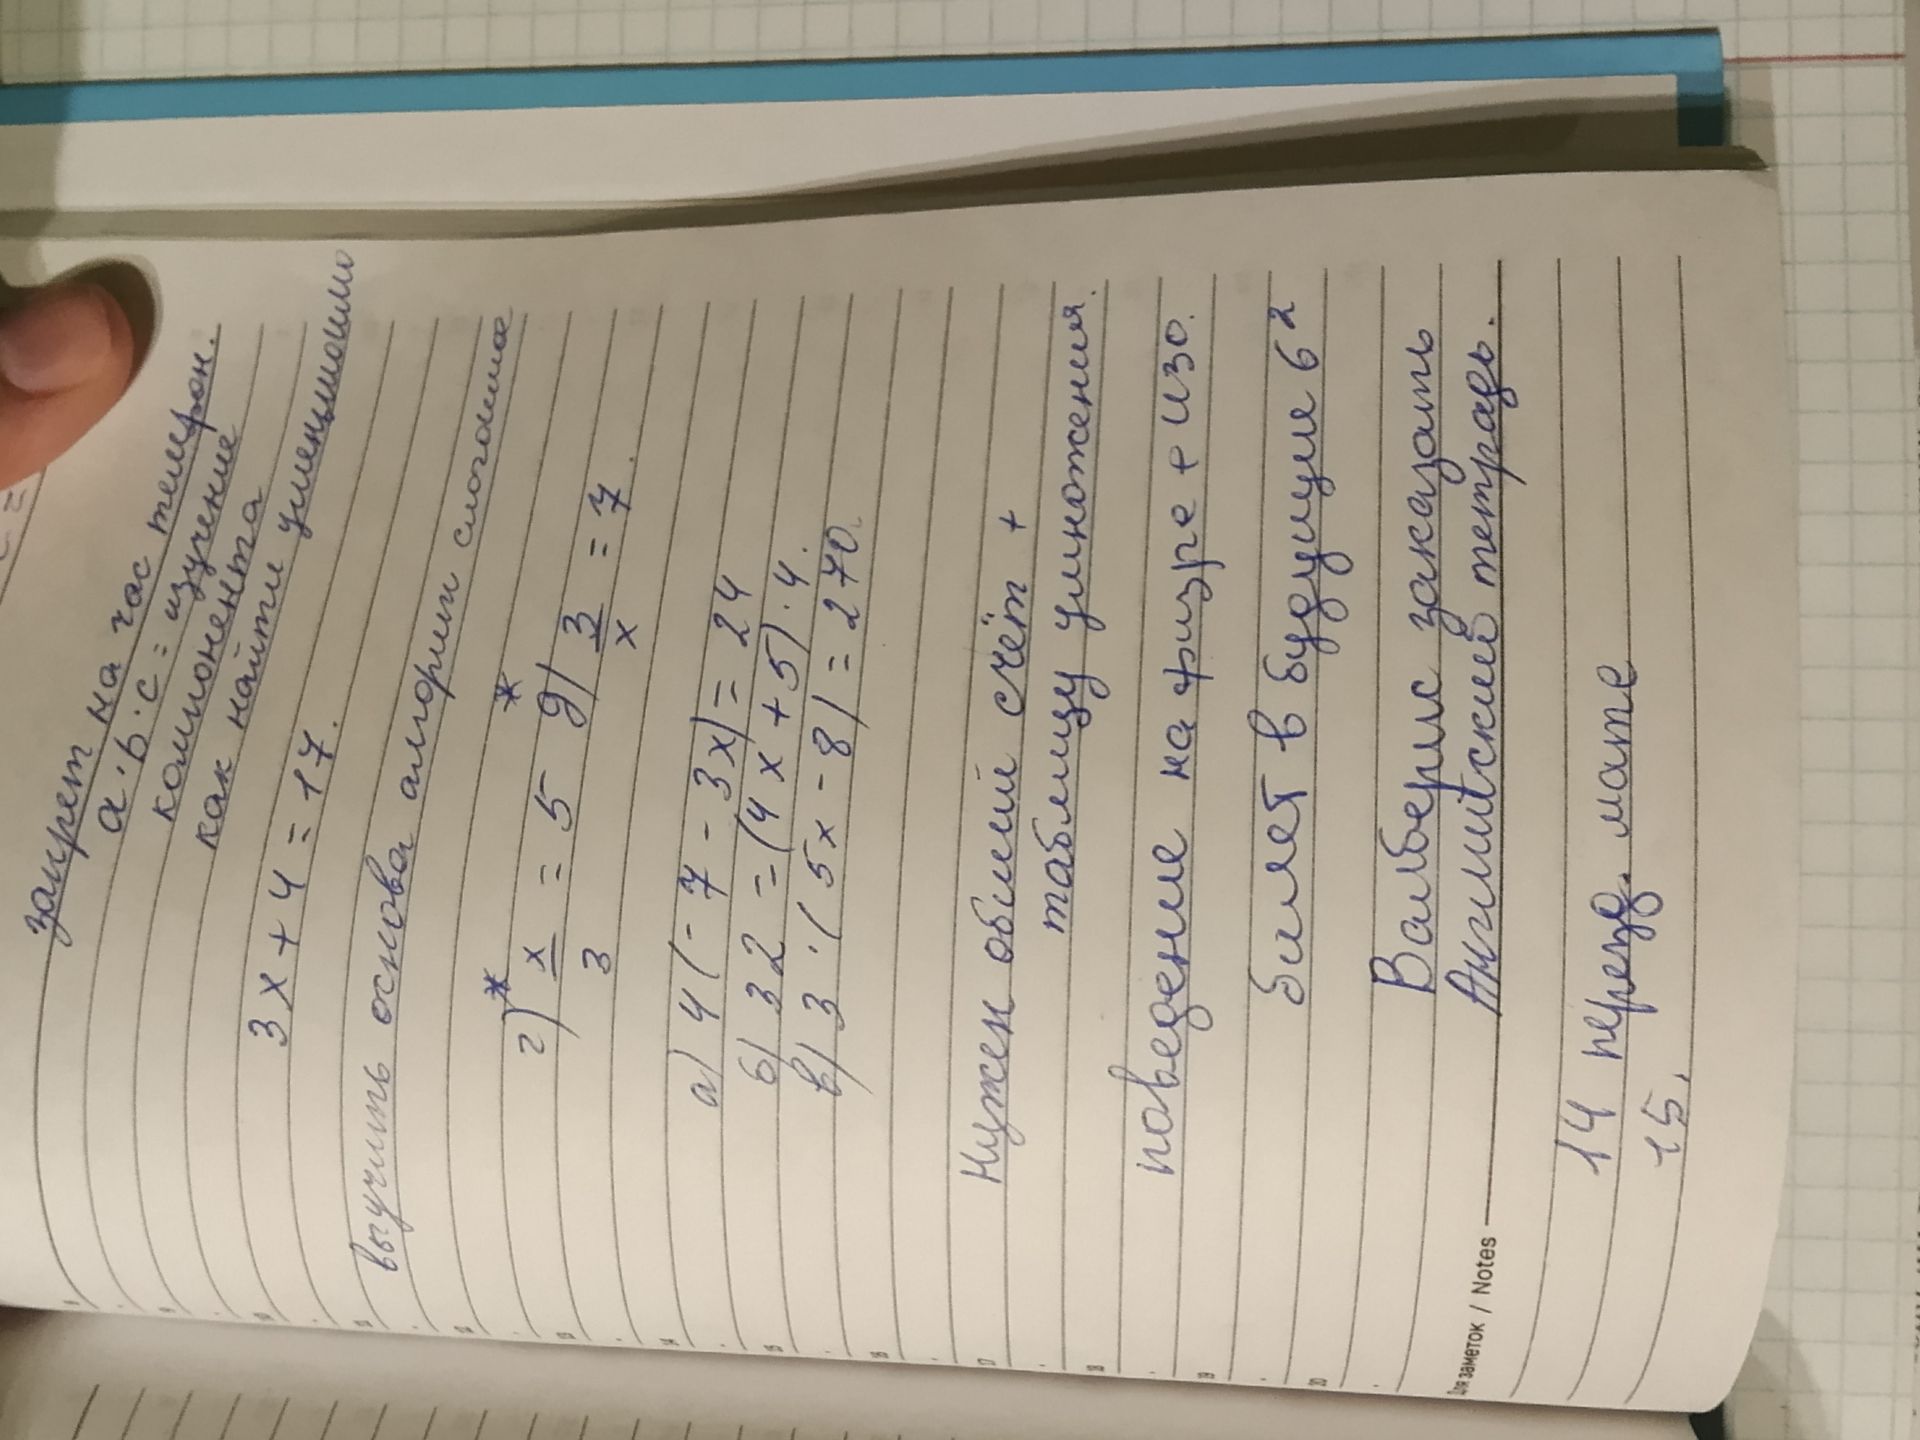 запрет на час телефон.
a·b·c = изучение
компонента
как найти уменшошлю
3x + 4 = 17.
выучить основа алгорим слогание
* *
г) x/3 = 5 д) 3/x = 7.
а) 4(-7 - 3x) = 24
б) 32 = (4x + 5)·4.
в) 3·(5x - 8) = 270.
Нужен обший счёт +
таблицу умножения.
поведение на физре + изо.
билет в будущие 6²
Валберис заказать
Англитский тетрадь.
Для заметок / Notes
14 перезд. мате
15.